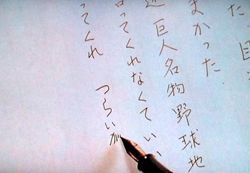 た
まかった.
巨人名物野球地
ってくれなくていい、
ってくれ
つらいが